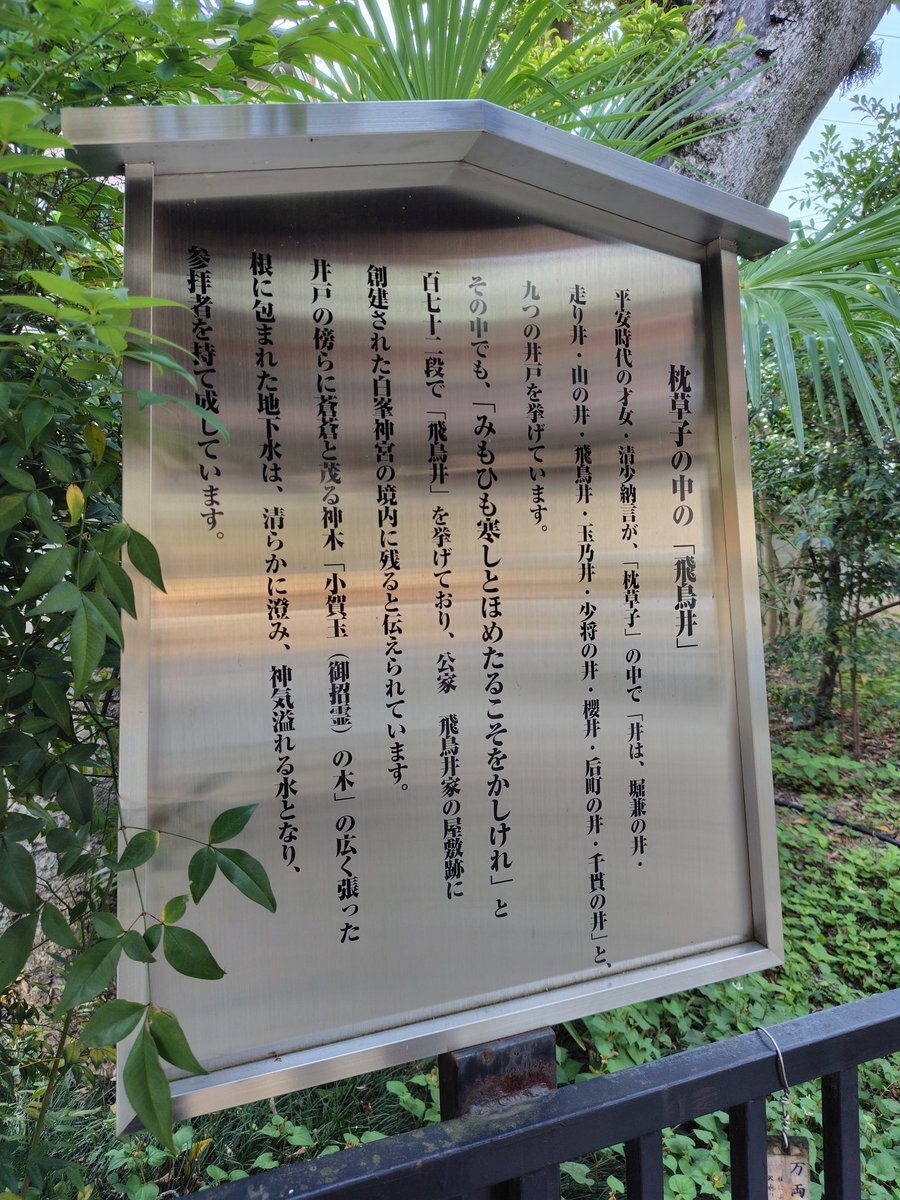 枕草子の中の「飛鳥井」
平安時代の才女・清少納言が、「枕草子」の中で「井は、堀兼の井・
走り井・山の井・飛鳥井・玉乃井・少将の井・櫻井・后町の井・千貫の井」と、
九つの井戸を挙げています。
その中でも、「みもひも寒しとほめたるこそをかしけれ」と
百七十二段で「飛鳥井」を挙げており、公家　飛鳥井家の屋敷跡に
創建された白峯神宮の境内に残ると伝えられています。
井戸の傍らに蒼蒼と茂る神木「小賀玉（御招霊）の木」の広く張った
根に包まれた地下水は、清らかに澄み、神気溢れる水となり、
参拝者を持て成しています。
万両